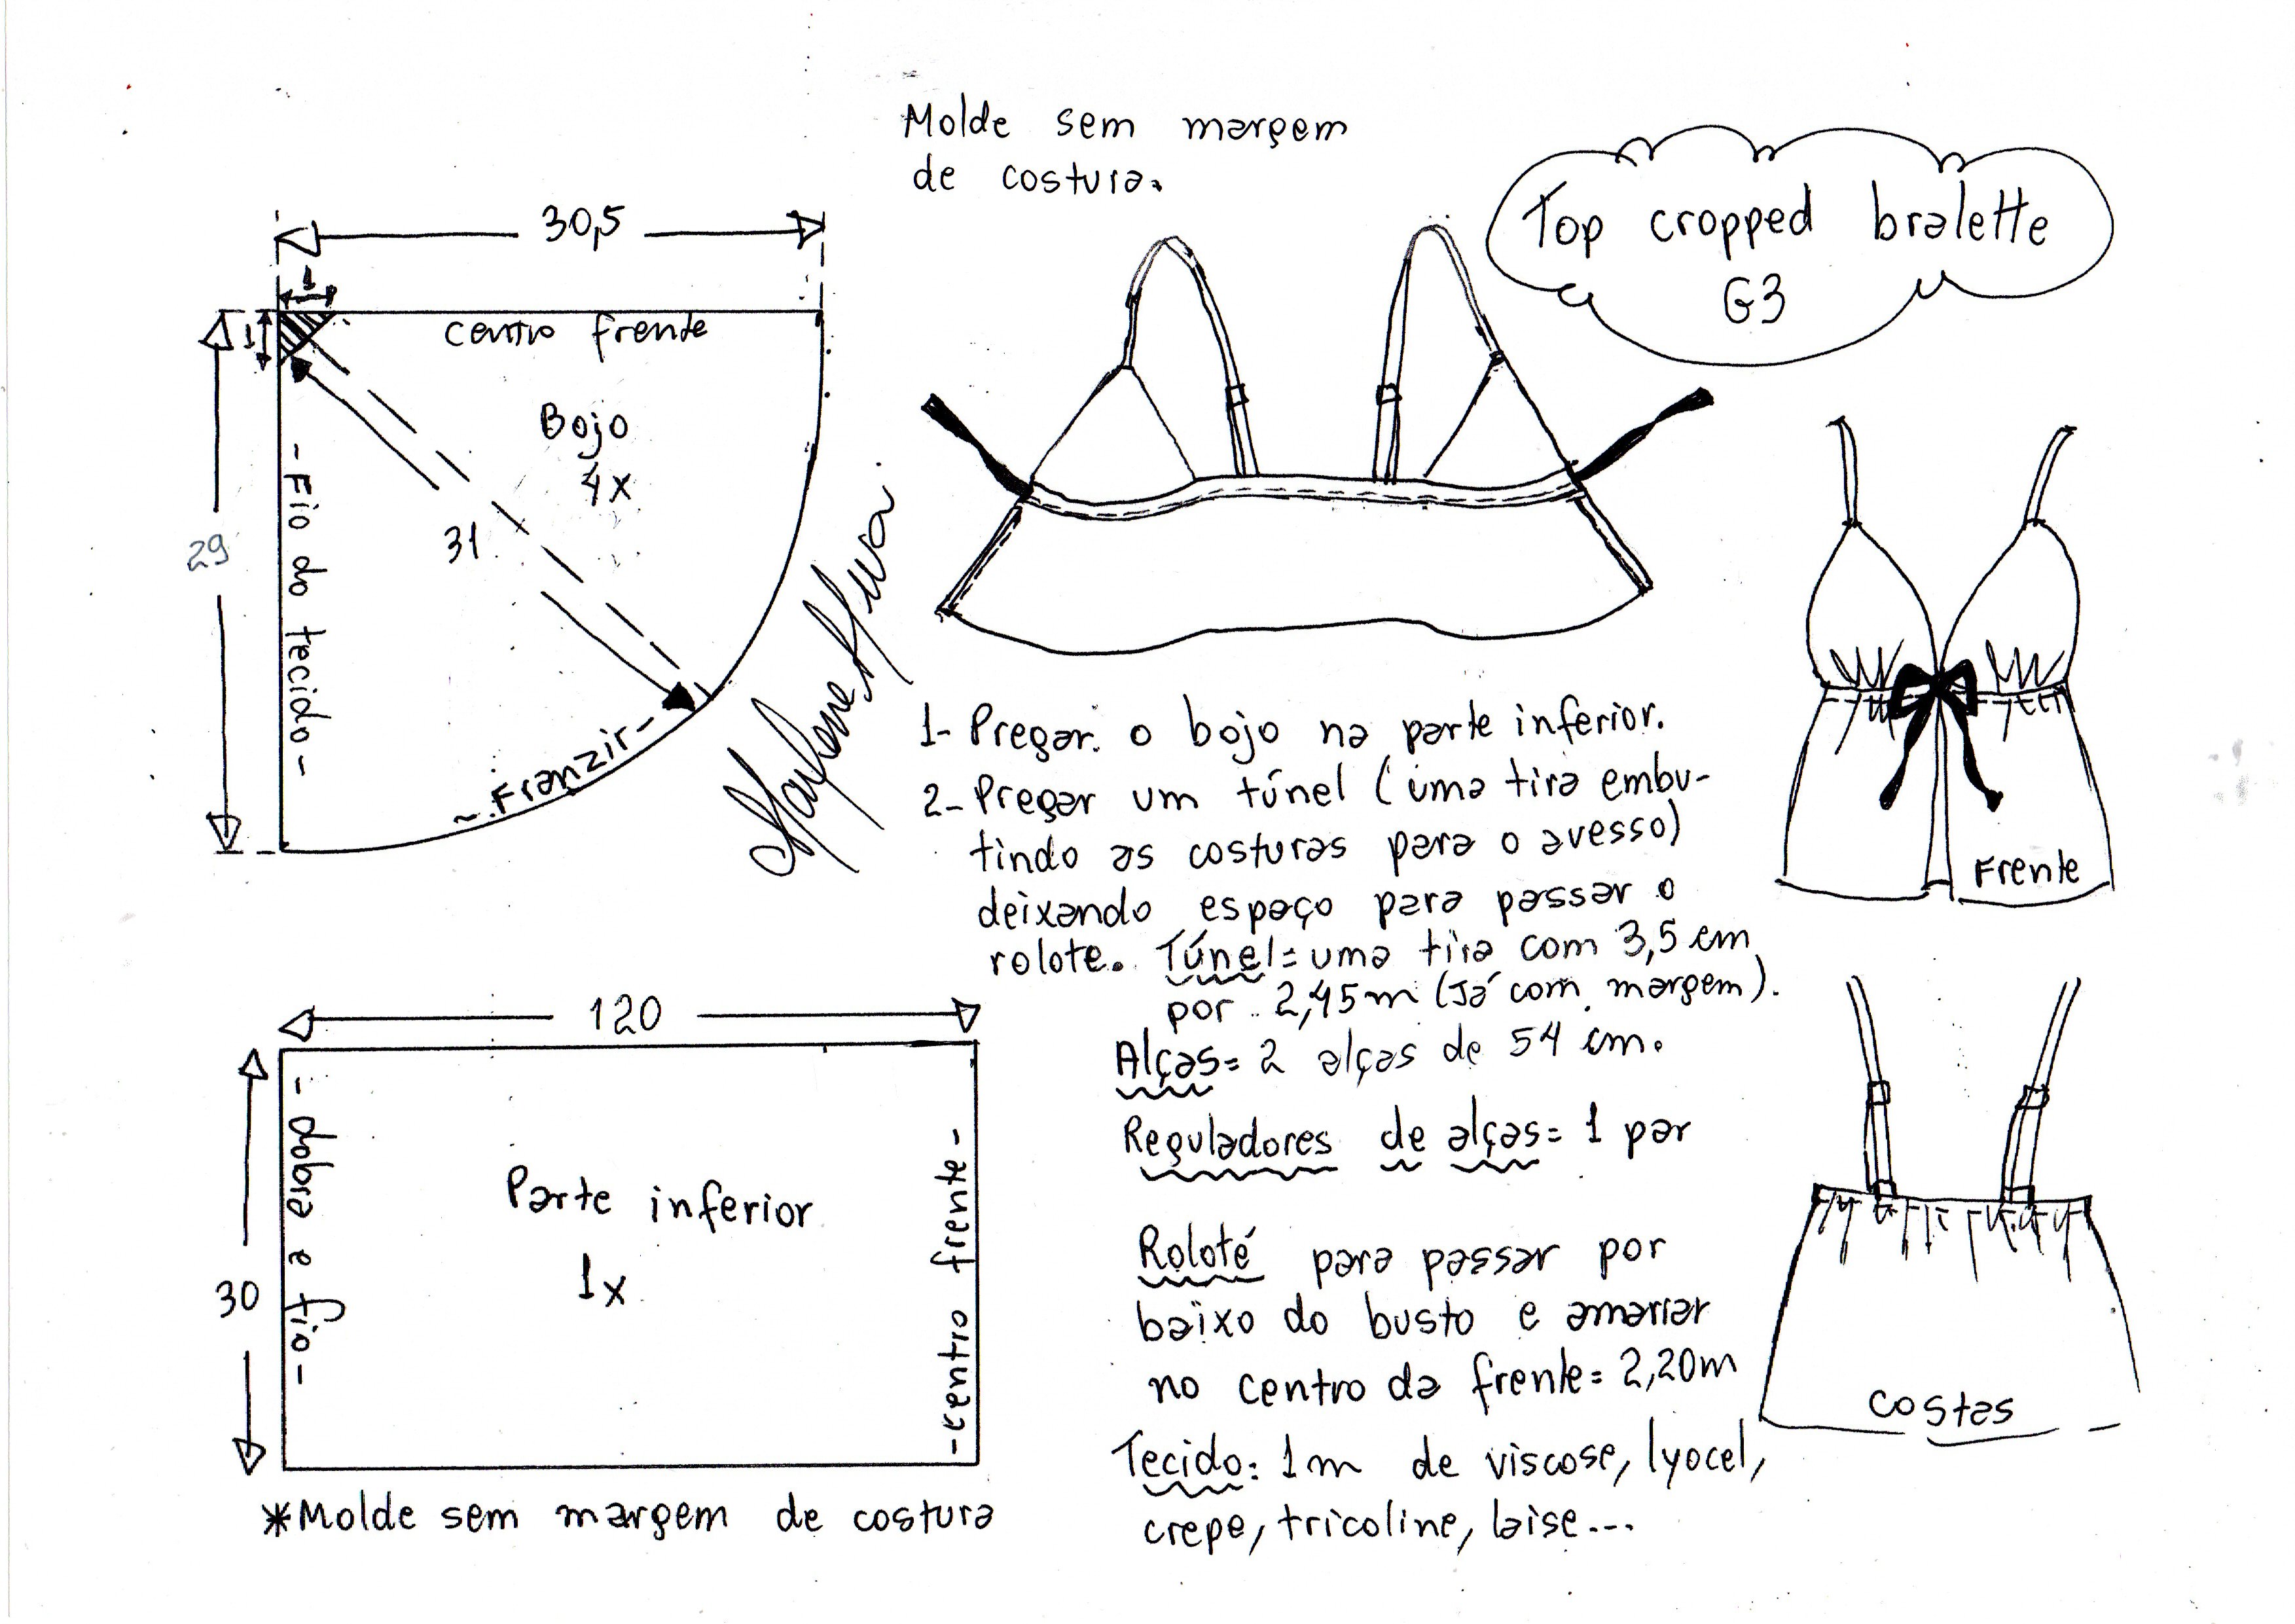 Molde sem margem
de costura.
Top cropped bralette
G3
30,5
1
1
centro frente
Bojo
4x
29
31
-Fio do tecido-
-Franzir-
1- Pregar o bojo na parte inferior.
2- Pregar um túnel (uma tira embu-
tindo as costuras para o avesso)
deixando espaço para passar o
rolote. Túnel= uma tira com 3,5 cm
por 2,45m (Já com margem).
Alças= 2 alças de 54 cm.
Reguladores de alças= 1 par
Roloté para passar por
baixo do busto e amarrar
no centro da frente= 2,20m
Tecido: 1m de viscose, lyocel,
crepe, tricoline, laise...
Frente
Costas
120
30
- dobra e fio-
Parte inferior
1x
-centro frente-
*Molde sem margem de costura